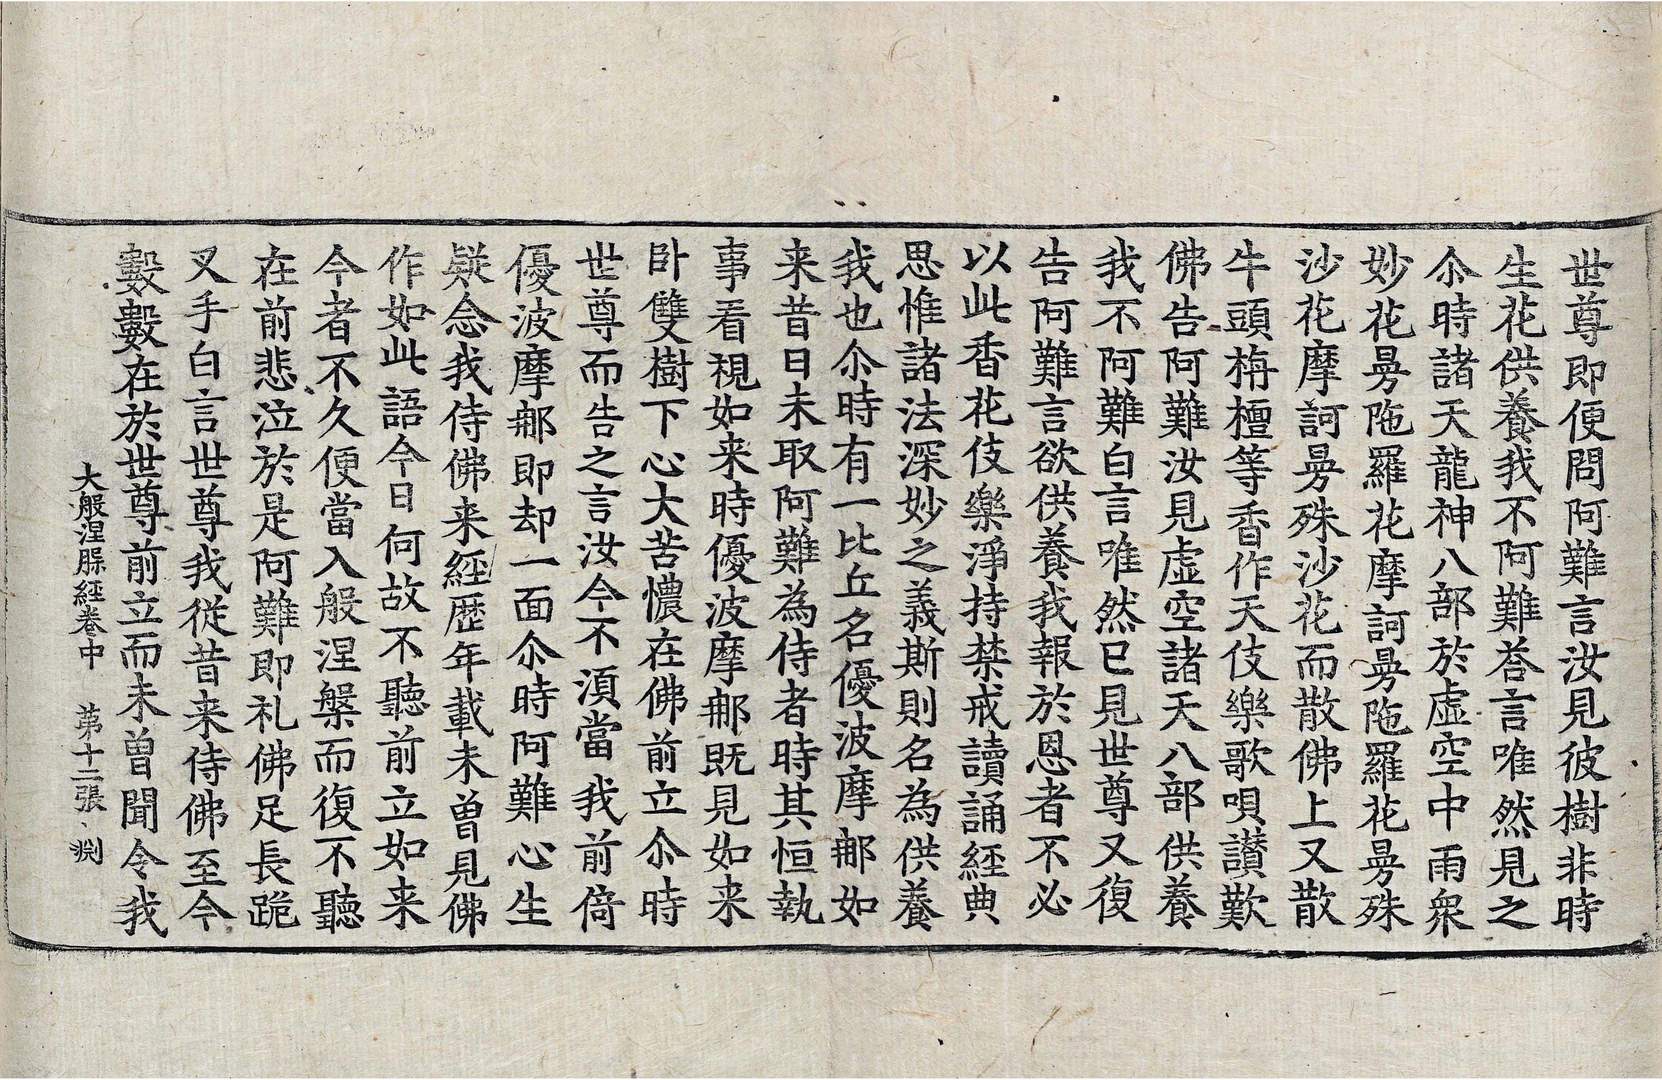 世尊即便問阿難言汝見彼樹非時
生花供養我不阿難荅言唯然見之
尒時諸天龍神八部於虛空中雨衆
妙花曼陁羅花摩訶曼陁羅花曼殊
沙花摩訶曼殊沙花而散佛上又散
牛頭栴檀等香作天伎樂歌唄讃歎
佛告阿難汝見虛空諸天八部供養
我不阿難白言唯然已見世尊又復
告阿難言欲供養我報於恩者不必
以此香花伎樂淨持禁戒讀誦經典
思惟諸法深妙之義斯則名為供養
我也尒時有一比丘名優波摩那如
来昔日未取阿難為侍者時其恒執
事看視如来時優波摩那既見如来
卧雙樹下心大苦懷在佛前立尒時
世尊而告之言汝今不湏當我前倚
優波摩那即却一面尒時阿難心生
疑念我侍佛来經歷年載未曾見佛
作如此語今日何故不聽前立如来
今者不久便當入般涅槃而復不聽
在前悲泣於是阿難即礼佛足長跪
叉手白言世尊我従昔来侍佛至今
數數在於世尊前立而未曾聞令我
大般涅槃經卷中 第十二張 淵